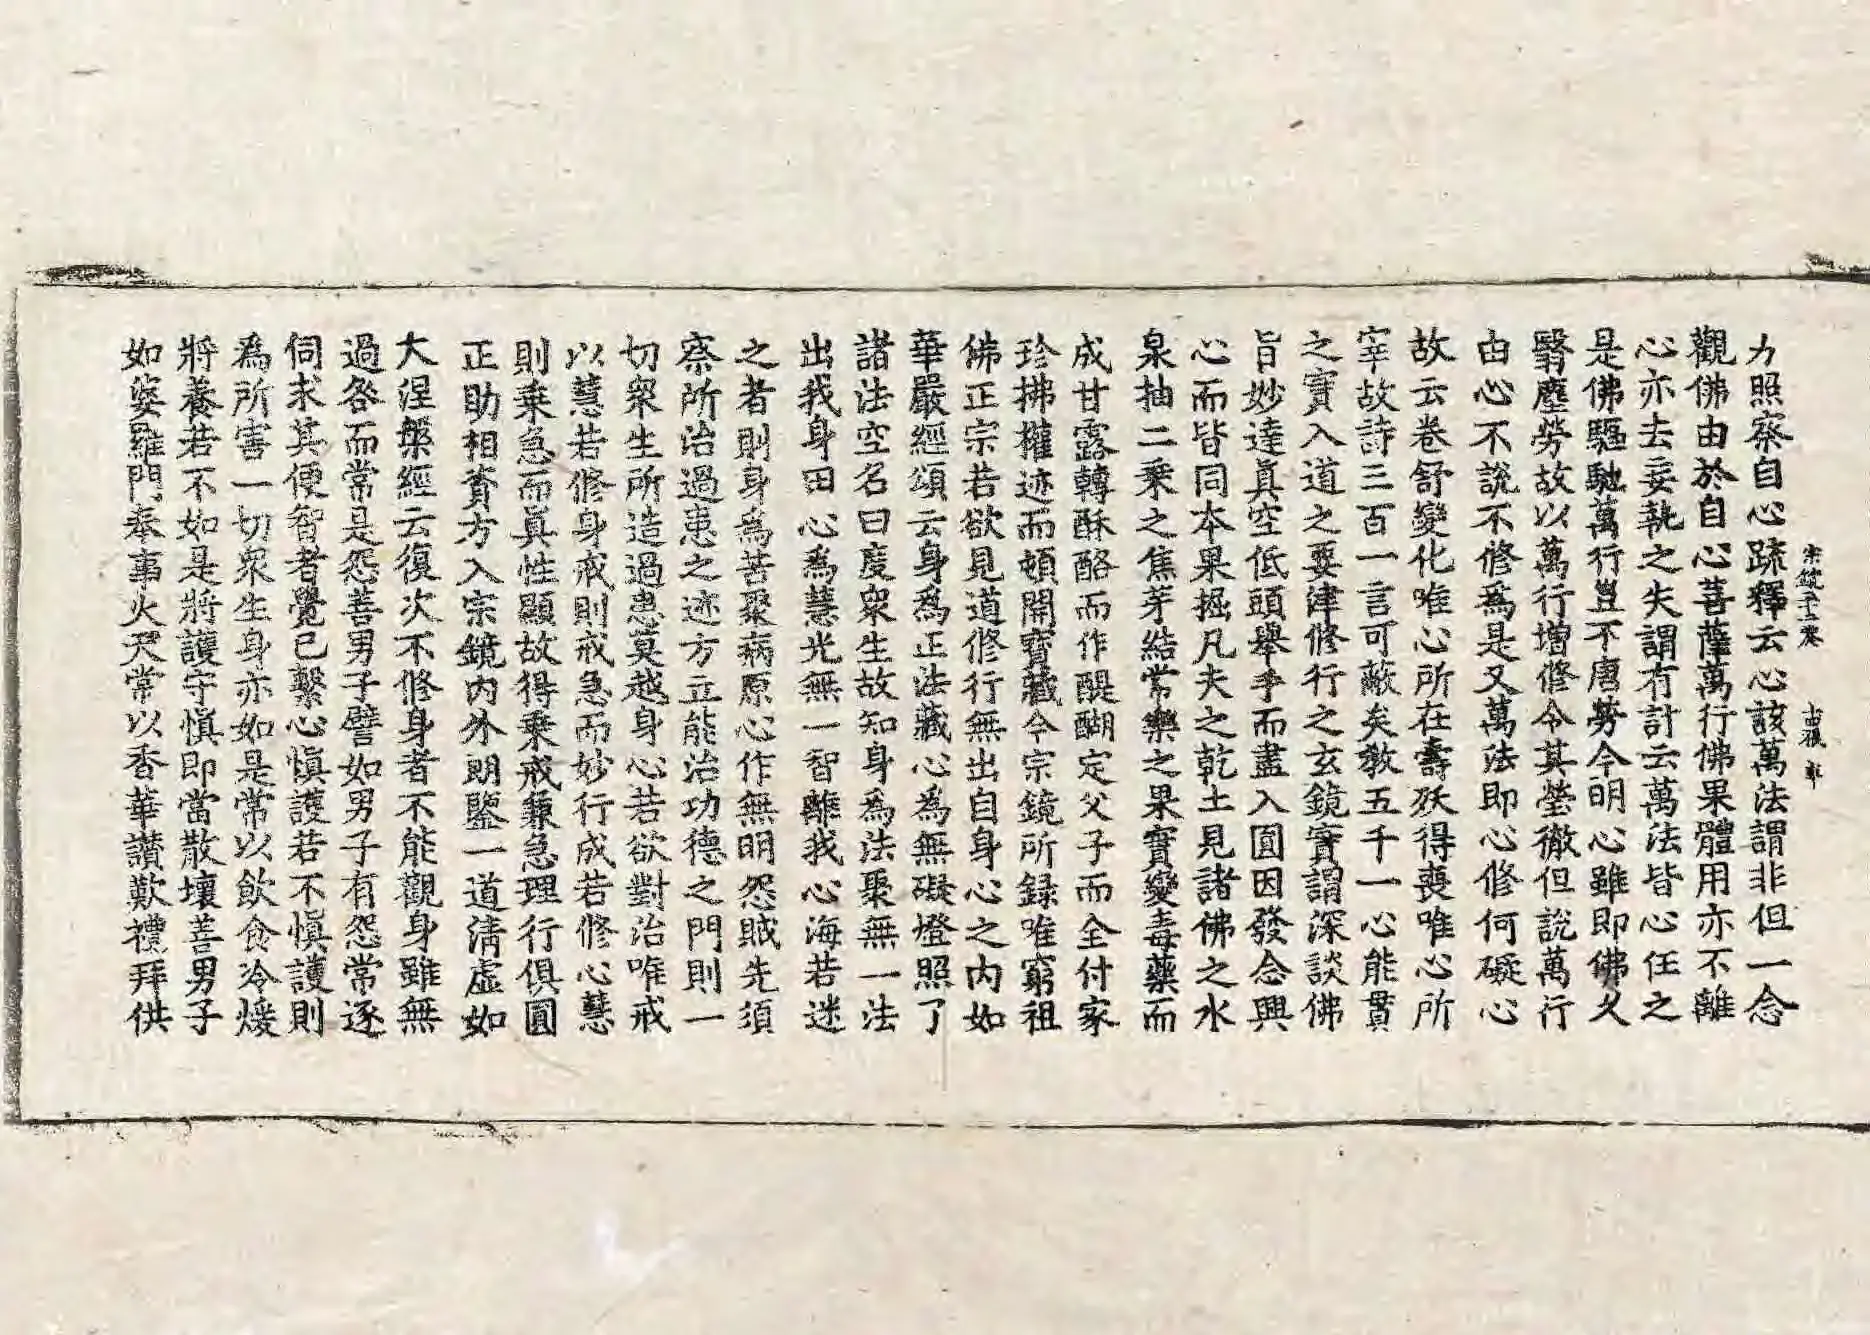 宗鏡
力照察自心疏釋云心該萬法謂非但一念
觀佛由於自心菩薩萬行佛果體用亦不離
心亦去妄執之失謂有計云萬法皆心任之
是佛驅馳萬行豈不唐勞今明心雖即佛久
翳塵勞故以萬行增修令其瑩徹但說萬行
由心不說不修為是又萬法即心修何礙心
故云卷舒變化唯心所在壽殀得喪唯心所
宰故詩三百一言可蔽矣教五千一心能貫
之實入道之要津修行之玄鏡實謂深談佛
旨妙達真空低頭舉手而盡入圓因發念興
心而皆同本果掘凡夫之乾土見諸佛之水
泉抽二乘之焦芽結常樂之果實變毒藥而
成甘露轉酥酪而作醍醐定父子而全付家
珍拂權迹而頓開寶藏今宗鏡所錄唯窮祖
佛正宗若欲見道修行無出自身心之內如
華嚴經頌云身為正法藏心為無礙燈照了
諸法空名曰度眾生故知身為法聚無一法
出我身田心為慧光無一智離我心海若迷
之者則身為苦聚病原心作無明怨賊先須
察所治過患之迹方立能治功德之門則一
切眾生所造過患莫越身心若欲對治唯戒
以慧若修身戒則戒急而妙行成若修心慧
則乘急而真性顯故得乘戒兼急理行俱圓
正助相資方入宗鏡內外明鑒一道清虛如
大涅槃經云復次不修身者不能觀身雖無
過咎而常是怨善男子譬如男子有怨常逐
伺求其便智者覺已繫心慎護若不慎護則
為所害一切眾生身亦如是常以飲食冷煖
將養若不如是將護守慎即當散壞善男子
如婆羅門奉事火天常以香華讚歎禮拜供